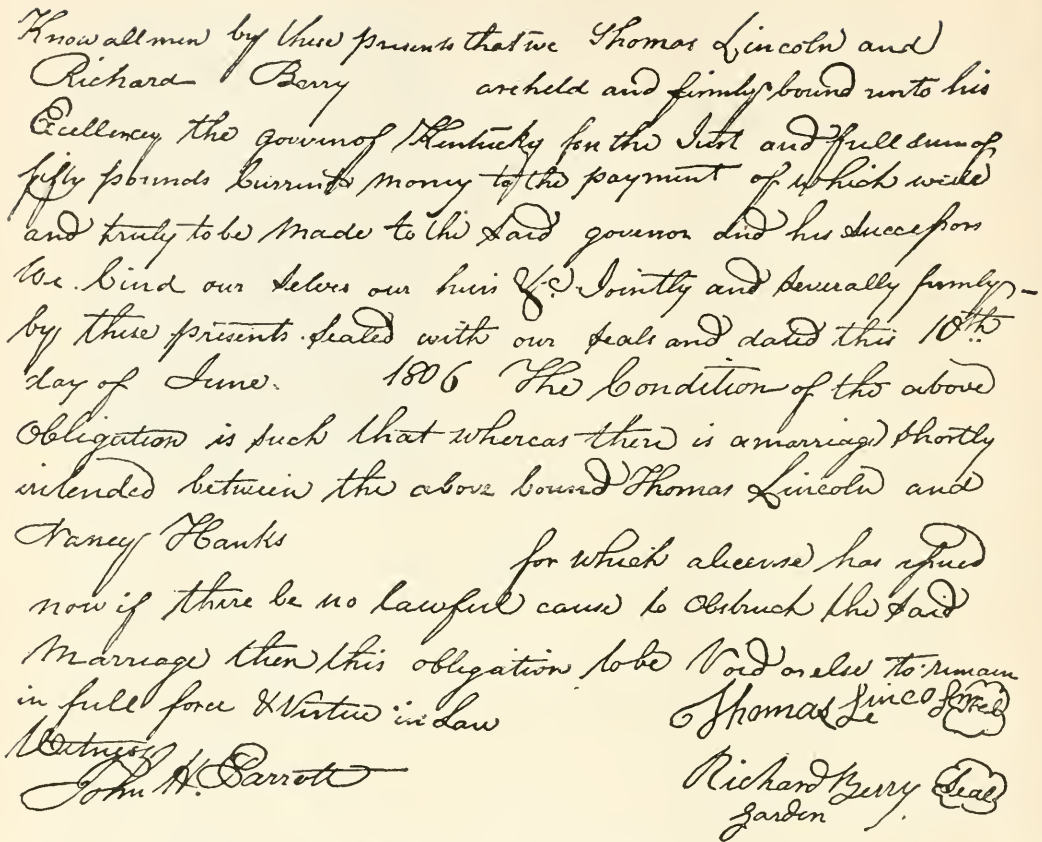 Know all men by these presents that we Thomas Lincoln and
Richard Berry are held and firmly bound unto his
Excellency the governor of Kentucky for the Just and full sum of
fifty pounds Current money to the payment of which well
and truly to be made to the said governor and his successors
We bind our selves our heirs &c. Jointly and severally firmly
by these presents sealed with our seals and dated this 10th
day of June. 1806 The Condition of the above
Obligation is such that whereas there is a marriage shortly
intended between the above bound Thomas Lincoln and
Nancy Hanks for which a license has issued
now if there be no lawful cause to obstruct the said
Marriage then this obligation to be Void or else to remain
in full force & Virtue in Law
Thomas Lincoln seal
Witness
John H. Parrott
Richard Berry seal
garden